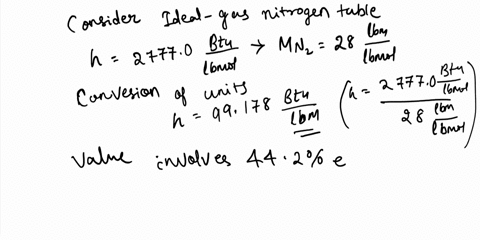 Consider Ideal-gas nitrogen table
h = 2777.0 Btu/lbmol → MN2 = 28 lbm/lbmol
Convesion of units
h = 99.178 Btu/lbm (h = 2777.0 Btu/lbmol / 28 lbm/lbmol)
Value involves 44.2% e